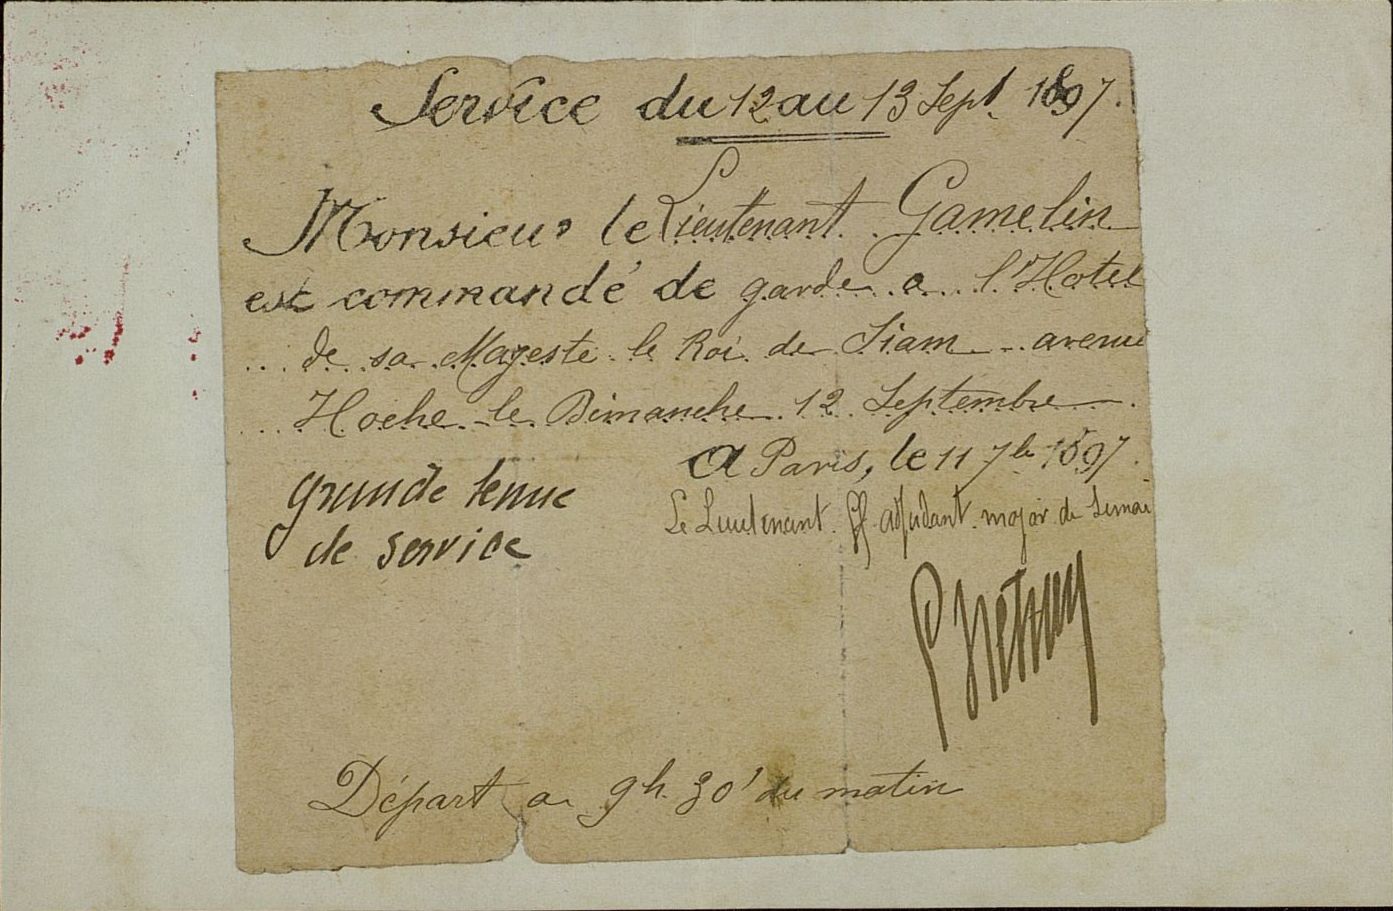 Service du 12 au 13 Sept. 1897.
Monsieur le Lieutenant Gamelin
est commandé de garde a l'Hotel
de sa Mayeste le Roi de Siam avenue
Hoche le Dimanche 12 Septembre
A Paris, le 11 7bre 1897.
grande tenue
de service
Le Lieutenant ff adjudant major de Semai
Départ a 9h. 30' du matin